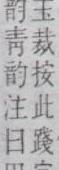 玉裁按此踐
韵靑韵注曰